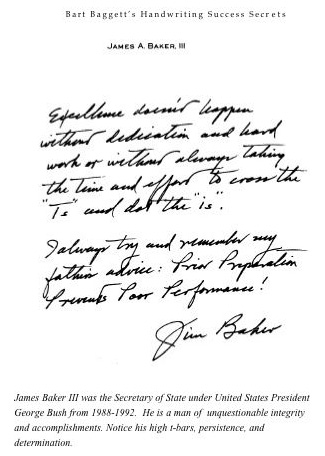 Bart Baggett's Handwriting Success Secrets
JAMES A. BAKER, III
Excellence doesn't happen
without dedication and hard
work or without always taking
the time and effort to cross the
"Ts" and dot the "is".
I always try and remember my
fathers advice: Prior Preparation
Prevents Poor Performance!
Jim Baker
James Baker III was the Secretary of State under United States President
George Bush from 1988-1992. He is a man of unquestionable integrity
and accomplishments. Notice his high t-bars, persistence, and
determination.